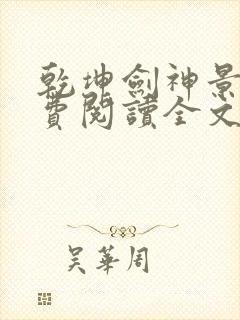 乾坤劍神景
費閱讀全文
吴華周